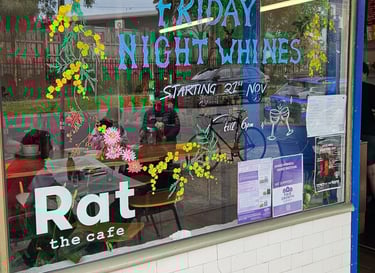 FRIDAY
NIGHT WHINES
STARTING 21ST NOV
till 6pm
Rat
the cafe